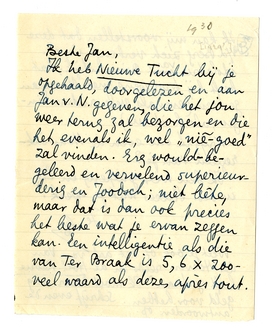 1930
Beste Jan,
Ik heb Nieuwe Tucht bij je
opgehaald, doorgelezen en aan
Jan v. N. gegeven, die het jou
weer terug zal bezorgen en die
het, evenals ik, wel "niè-goed"
zal vinden. Erg would-be-
geleerd en vervelend superieur-
derig en Joodsch; niet bête,
maar dat is dan ook precies
het beste wat je ervan zeggen
kan. Een intelligentie als die
van Ter Braak is 5, 6 x zoo-
veel waard als deze, après tout.